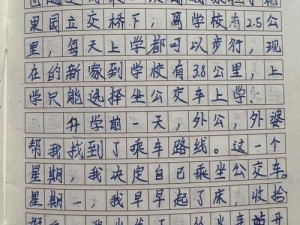 果园立交桥下，离学校有2.5公
里，每天上学都可以步行，现
在的新家到学校有3.8公里，上
学只能选择坐公交车上学。
开学前一天，外公，外婆
帮我找到了乘车路线。这一个
星期一，我决定自己乘坐公交车。
星期一，我早早起了床，收拾